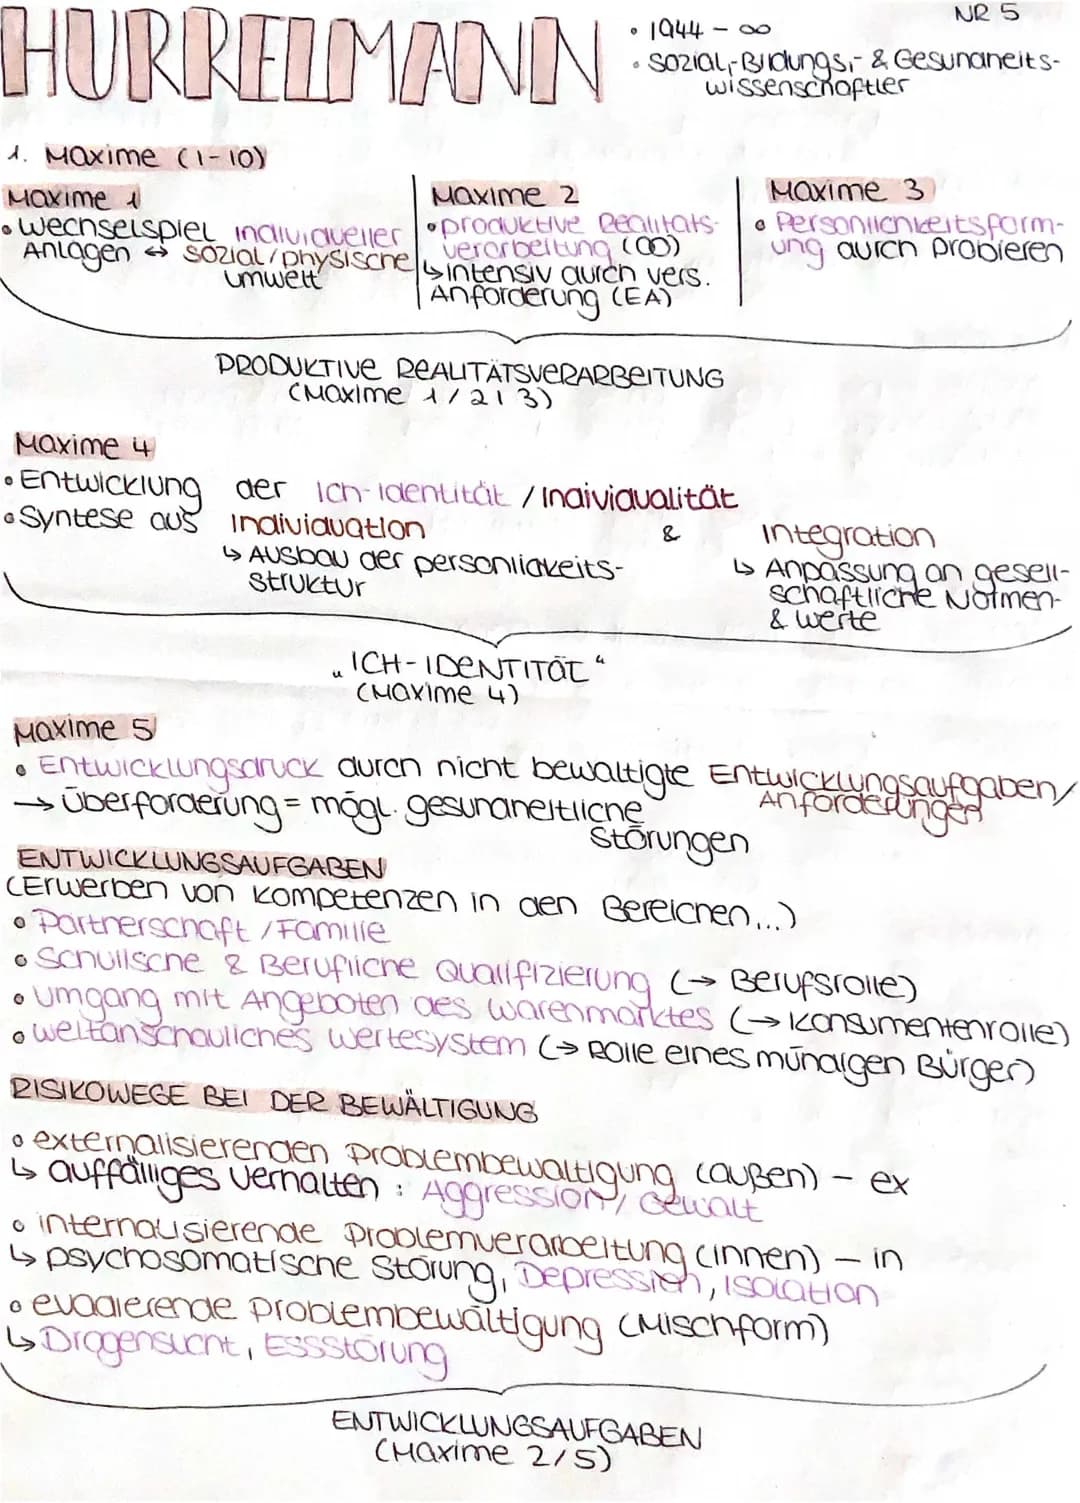 HURRELMANN
NR 5
• 1944 - ∞
• Sozial,- Bildungs,- & Gesundheits-
wissenschaftler
1. Maxime (1-10)
Maxime 1
• Wechselspiel individueller
Anlagen ↔ sozial/physische
umwelt
Maxime 2
• produktive Realitäts-
verarbeitung (∞)
↳ intensiv durch vers.
Anforderung (EA)
Maxime 3
• Persönlichkeitsform-
ung durch Probieren
PRODUKTIVE REALITÄTSVERARBEITUNG
(Maxime 1/2/3)
Maxime 4
• Entwicklung der Ich-identität / Individualität
• Syntese aus Individuation & Integration
↳ Ausbau der persönlichkeits-
struktur
↳ Anpassung an gesell-
schaftliche Normen-
& werte
„ICH-IDENTITÄT“
(Maxime 4)
Maxime 5
• Entwicklungsdruck durch nicht bewältigte Entwicklungsaufgaben/
Anforderungen
→ Überforderung = mögl. gesundheitliche
Störungen
ENTWICKLUNGSAUFGABEN
(Erwerben von Kompetenzen in den Bereichen...)
• Partnerschaft / Familie
• Schulische & Berufliche Qualifizierung (→ Berufsrolle)
• umgang mit Angeboten des warenmarktes (→ Konsumentenrolle)
• weltanschauliches Wertesystem (→ Rolle eines mündigen Bürger)
RISIKOWEGE BEI DER BEWÄLTIGUNG
• externalisierenden Problembewältigung (außen) - ex
↳ auffälliges verhalten : Aggression, Gewalt
• internalisierende Problemverarbeitung (innen) - in
↳ psychosomatische Störung, Depression, Isolation
• evadierende Problembewältigung (Mischform)
↳ Drogensucht, Essstörung
ENTWICKLUNGSAUFGABEN
(Maxime 2/5)